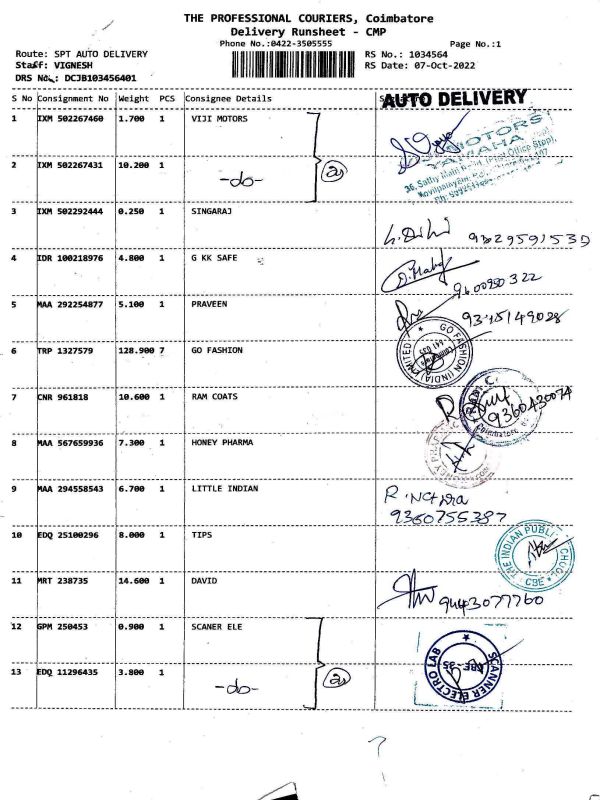 THE PROFESSIONAL COURIERS, Coimbatore
Delivery Runsheet - CMP
Phone No.:0422-3505555 Page No.:1
Route: SPT AUTO DELIVERY RS No.: 1034564
Staff: VIGNESH RS Date: 07-Oct-2022
DRS No.: DCJB103456401
S No Consignment No Weight PCS Consignee Details AUTO DELIVERY
1 IXM 502267460 1.700 1 VIJI MOTORS
MOTORS
YAMAHA
36, Sathy Main (Post Office Stop),
2 IXM 502267431 10.200 1 -do- 2
3 IXM 502292444 0.250 1 SINGARAJ
4 IDR 100218976 4.800 1 G KK SAFE
9600950322
5 MAA 292254877 5.100 1 PRAVEEN
9345149028
6 TRP 1327579 128.900 7 GO FASHION
GO FASHION (INDIA) LIMITED
7 CNR 961818 10.600 1 RAM COATS
9360430074
Coimbatore
8 MAA 567659936 7.300 1 HONEY PHARMA
9 MAA 294558543 6.700 1 LITTLE INDIAN
9360755387
10 EDQ 25100296 8.000 1 TIPS
THE INDIAN PUBLIC SCHOOL
CBE
11 MRT 238735 14.600 1 DAVID
9443077760
12 GPM 250453 0.900 1 SCANER ELE
SCANNER ELECTRO LAB
CBE-35
13 EDQ 11296435 3.800 1 -do- 2